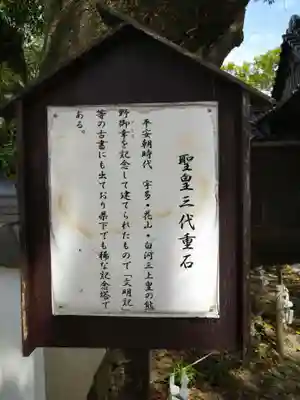 聖皇三代重石
平安朝時代　宇多・花山・白河三上皇の熊
野御幸を記念して建てられたもので「文明記」
等の古書にも出ており県下でも稀な記念塔で
ある。